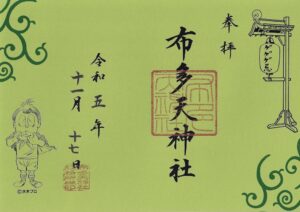 奉拝
布多天神社
令和五年
十一月十七日
ゲゲゲ
©水木プロ